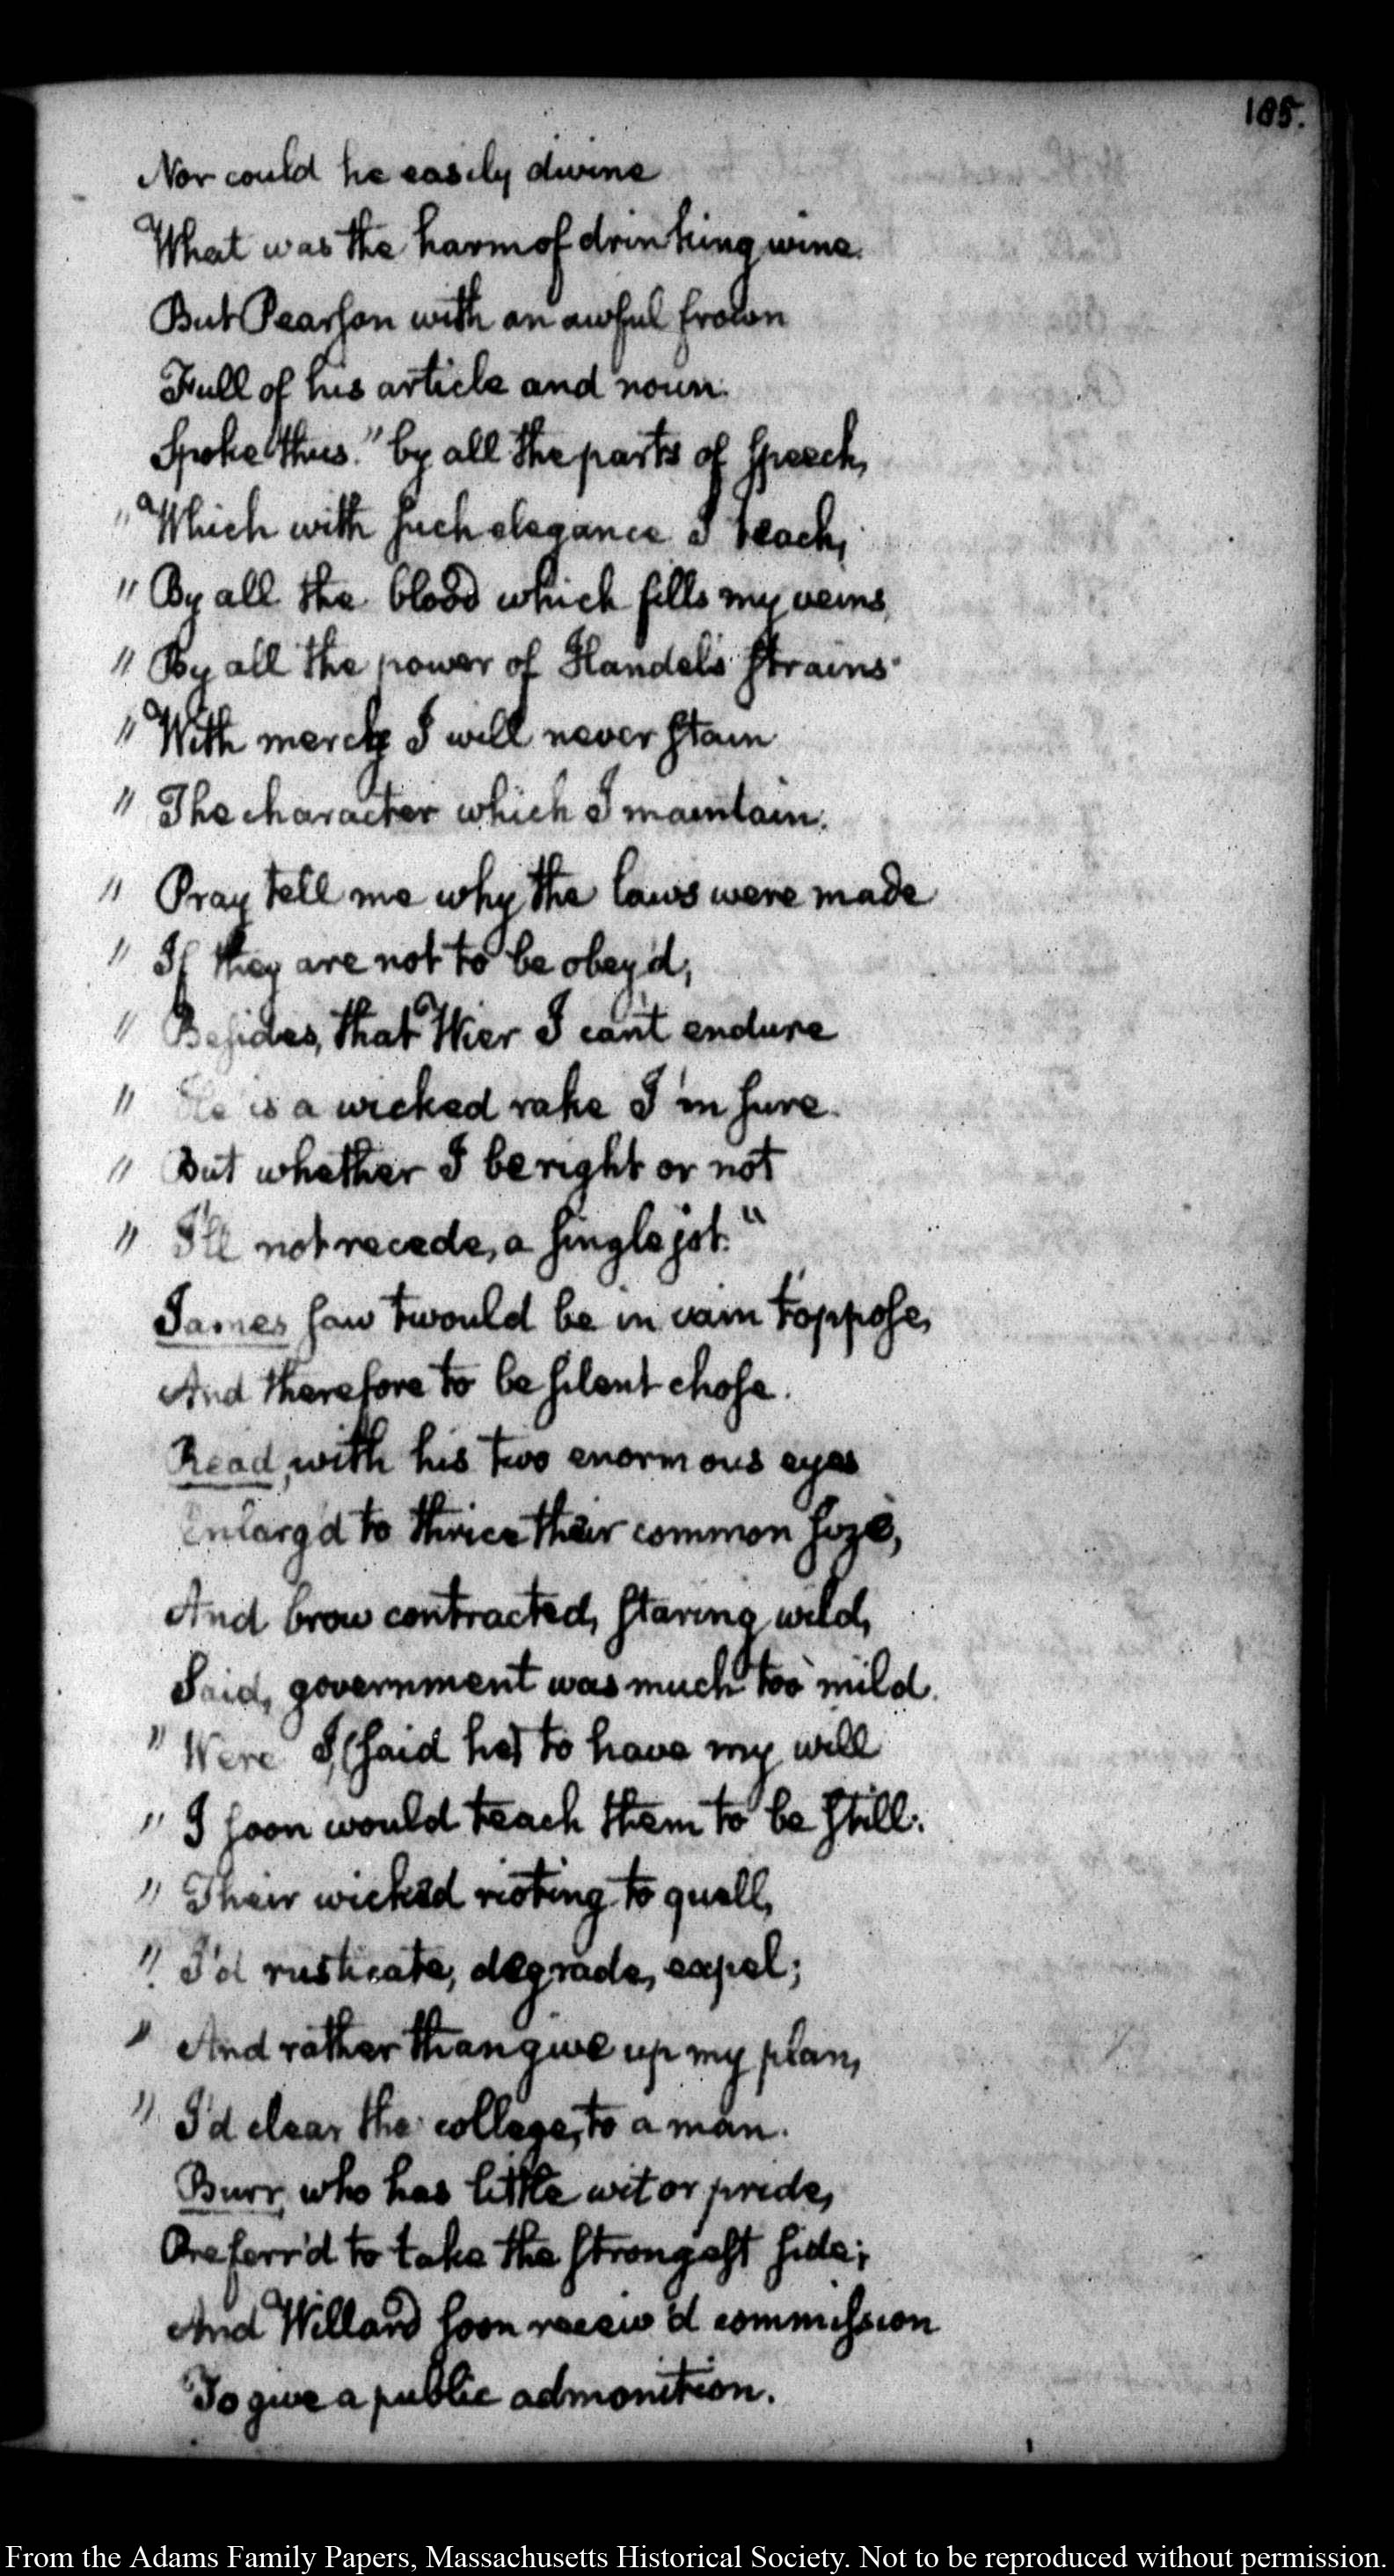 185.
Nor could he easily divine
What was the harm of drinking wine.
But Pearson with an awful frown
Full of his article and noun.
Spoke thus. "by all the parts of speech,
" Which with such elegance I teach,
" By all the blood which fills my veins,
" By all the power of Handel's strains
" With mercy I will never stain
" The character which I maintain.
" Pray tell me why the laws were made
" If they are not to be obey'd;
" Besides, that Wier I can't endure
" He is a wicked rake I'm sure.
" But whether I be right or not
" I'll not recede, a single jot."
James saw twould be in vain t'oppose,
And therefore to be silent chose.
Read, with his two enormous eyes
Enlarg'd to thrice their common size,
And brow contracted, staring wild,
Said, government was much too mild.
" Were I, (said he) to have my will
" I soon would teach them to be still.
" Their wicked rioting to quell,
" I'd rusticate, degrade, expel;
" And rather than give up my plan,
" I'd clear the college, to a man.
Burr, who has little wit or pride,
Preferr'd to take the strongest side;
And Willard soon receiv'd commission
To give a public admonition.
From the Adams Family Papers, Massachusetts Historical Society. Not to be reproduced without permission.